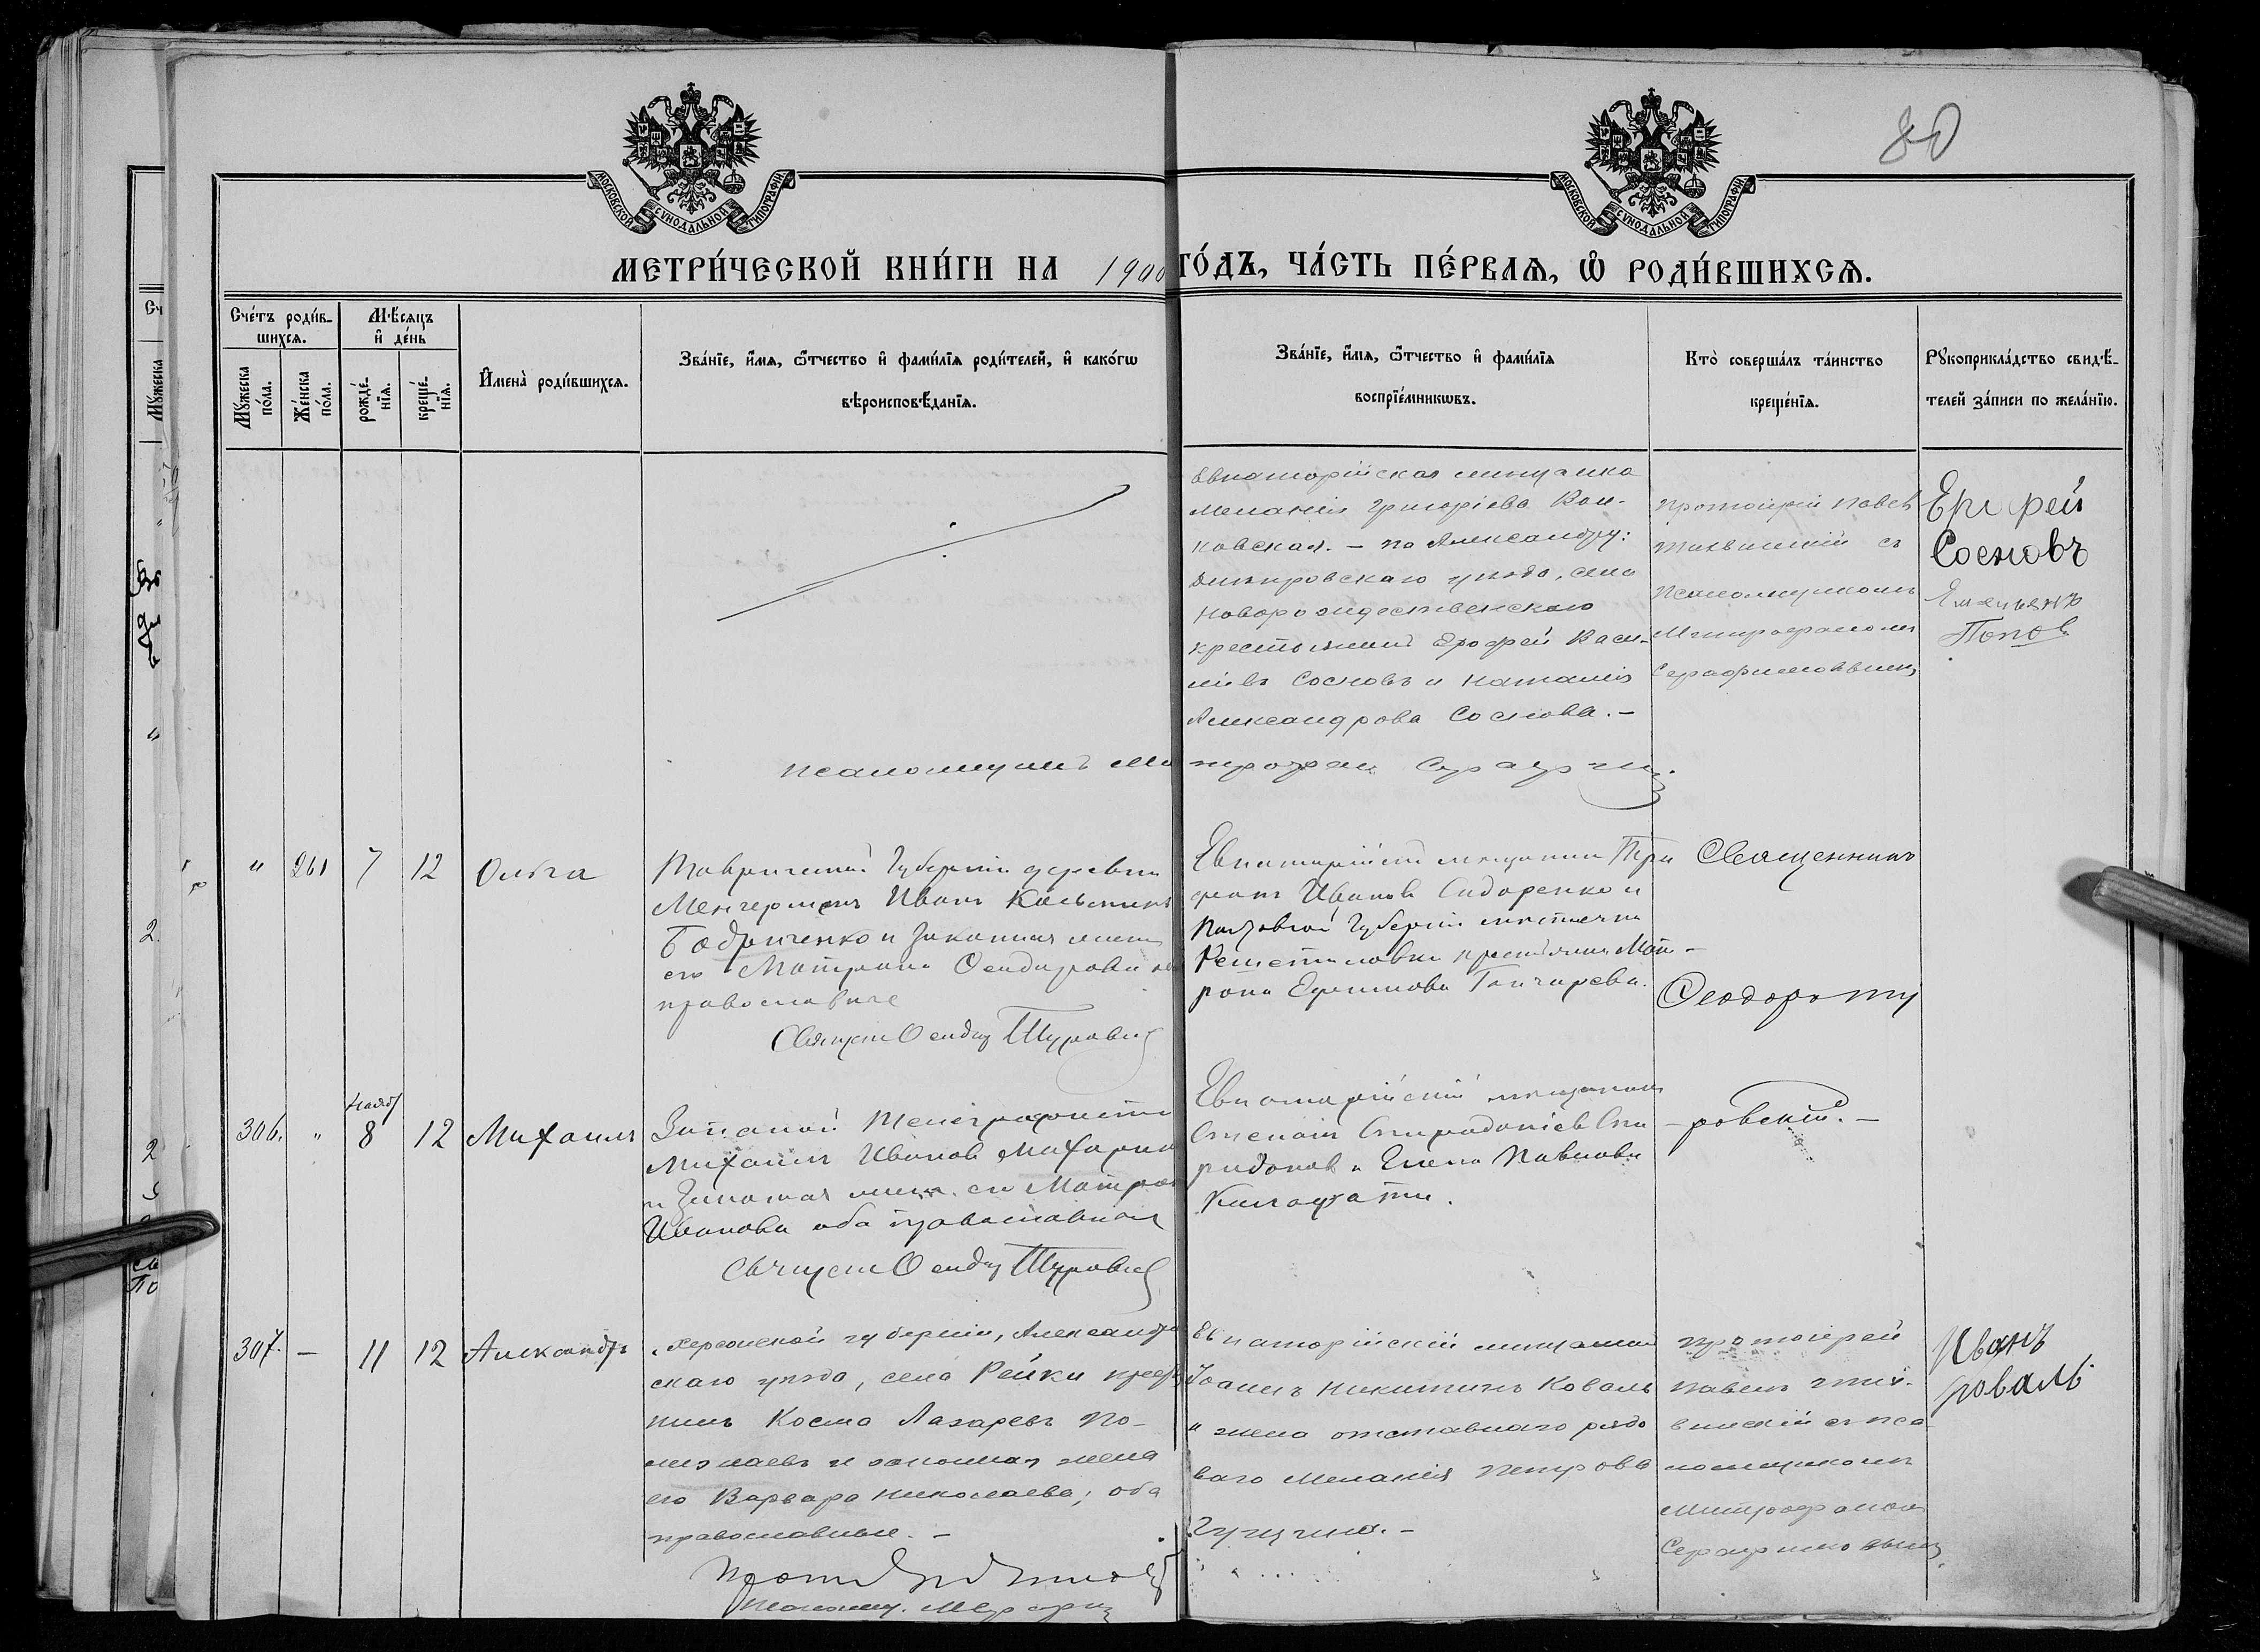 80
МОСКОВСКОЙ СѴНОДАЛЬНОЙ ТИПОГРАФІИ
МОСКОВСКОЙ СѴНОДАЛЬНОЙ ТИПОГРАФІИ
МЕТРИ́ЧЕСКОЙ КНИ́ГИ НА 1900 ГО́ДЪ, ЧА́СТЬ ПЕ́РВАѦ, Ѡ҆ РОДИ́ВШИХСѦ.
Сче́тъ роди́в-
шихсѧ.
Мꙋ́жеска
по́ла.
Же́нска
по́ла.
Мѣ́сѧцъ
и҆ де́нь
рожде́-
нїѧ.
креще́-
нїѧ.
И҆мена̀ роди́вшихсѧ.
Зва́нїе, и҆́мѧ, ѻ҆́тчество и҆ фами́лїѧ роди́телей, и҆ како́гѡ
вѣроисповѣ́данїѧ.
Зва́нїе, и҆́мѧ, ѻ҆́тчество и҆ фами́лїѧ
воспрїе́мникѡвъ.
Кто̀ соверша́лъ та́инство
креще́нїѧ.
Рꙋкоприкла́дство свидѣ́-
телей за́писи по жела́нїю.
Евпаторійская мещанка
Меланія Григорьева
ковская. – по Александру:
Днѣпровскаго уѣзда, села
Новорождественскаго
крестьянинъ Ерофей Васи-
ліевъ Сосновъ и Наталія
Александрова Соснова. –
протоіерей Павелъ
Тихвинскій съ
псаломщикомъ
Митрофаномъ
Серафимовымъ
Сосновъ
Емельянъ
Попов
псаломщикъ Митрофан
" 261 7 12 Ольга
Таврической Губерніи деревни
Иванъ
и законная жена
его Матрона Феодорова
православные
Священ Феодор
Евпаторійскій мещанинъ Три
фонъ Иванов Сидоренко и
Полтавской Губерніи местечка
Решетиловки крестьянка Мат-
рона Ефимова Гончарева.
Священникъ
Феодоръ
306. " Нояб 8 12 Михаилъ
Запасной Телеграфистъ
Михаилъ Иванов
и Законная жена его Матрона
Иванова оба православные
Священ Феодор
Евпаторійскій мещанинъ
Степанъ Спиридоніев Спи
ридонов и Елена Павлова
ровскій. –
307. – 11 12 Александръ
Херсонской губерніи, Александрій
скаго уѣзда, села Рейки крест
нинъ Косма Лазаревъ По-
и законная жена
его Варвара Николаева; оба
православные. –
Евпаторійскій мещанинъ
Іоаннъ Никитинъ Коваль
и жена отставнаго рядо
ваго Меланія Петрова
протоіерей
Павелъ Тих-
винскій съ пса
ломщикомъ
Митрофаномъ
Серафимовымъ
Иванъ
Коваль